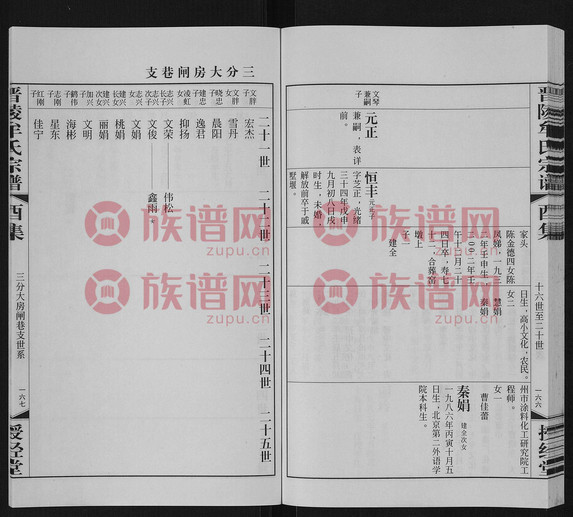 晋陵牟氏宗谱
酉集
十六世至二十世
一六六
授经堂
文琴兼嗣子
元正
兼嗣,表详
前。
元正子
恒丰
字芝正,光绪
三十四年戊申
九月初八日戌
时生,未婚,
解放前卒于戚
墅堰。
家头
陈金德四女陈
凤娣,一九三
二年壬申生,
二〇〇二年壬
午十月二十
四日卒,寿七
十二,合葬窑
墩上
子一
建全
女二
慧娟
秦娟
日生,高小文化,农民。
州市涂料化工研究院工
程师。
女一
曹佳蕾
秦娟
建全次女
一九八六年丙寅十月五
日生,北京第二外语学
院本科生。
三分大房闸巷支
二十一世
二十二世
二十三世
二十四世
二十五世
文胖子 宏杰
文胖女 雪丹
晓忠子 晨阳
建忠子 逸君
凌虹女 抑扬
志兴次子 文荣 伟松
志兴子 文俊 鑫雨
志兴女 文娟
建兴长女 桃娟
建兴次女 丽娟
加兴子 文明
鹤伟子 海彬
志刚子 星东
红刚子 佳宁
晋陵牟氏宗谱
酉集
三分大房闸巷支世系
一六七
授经堂
族谱网
zupu.cn
族谱网
zupu.cn
族谱网
zupu.cn
族谱网
zupu.cn